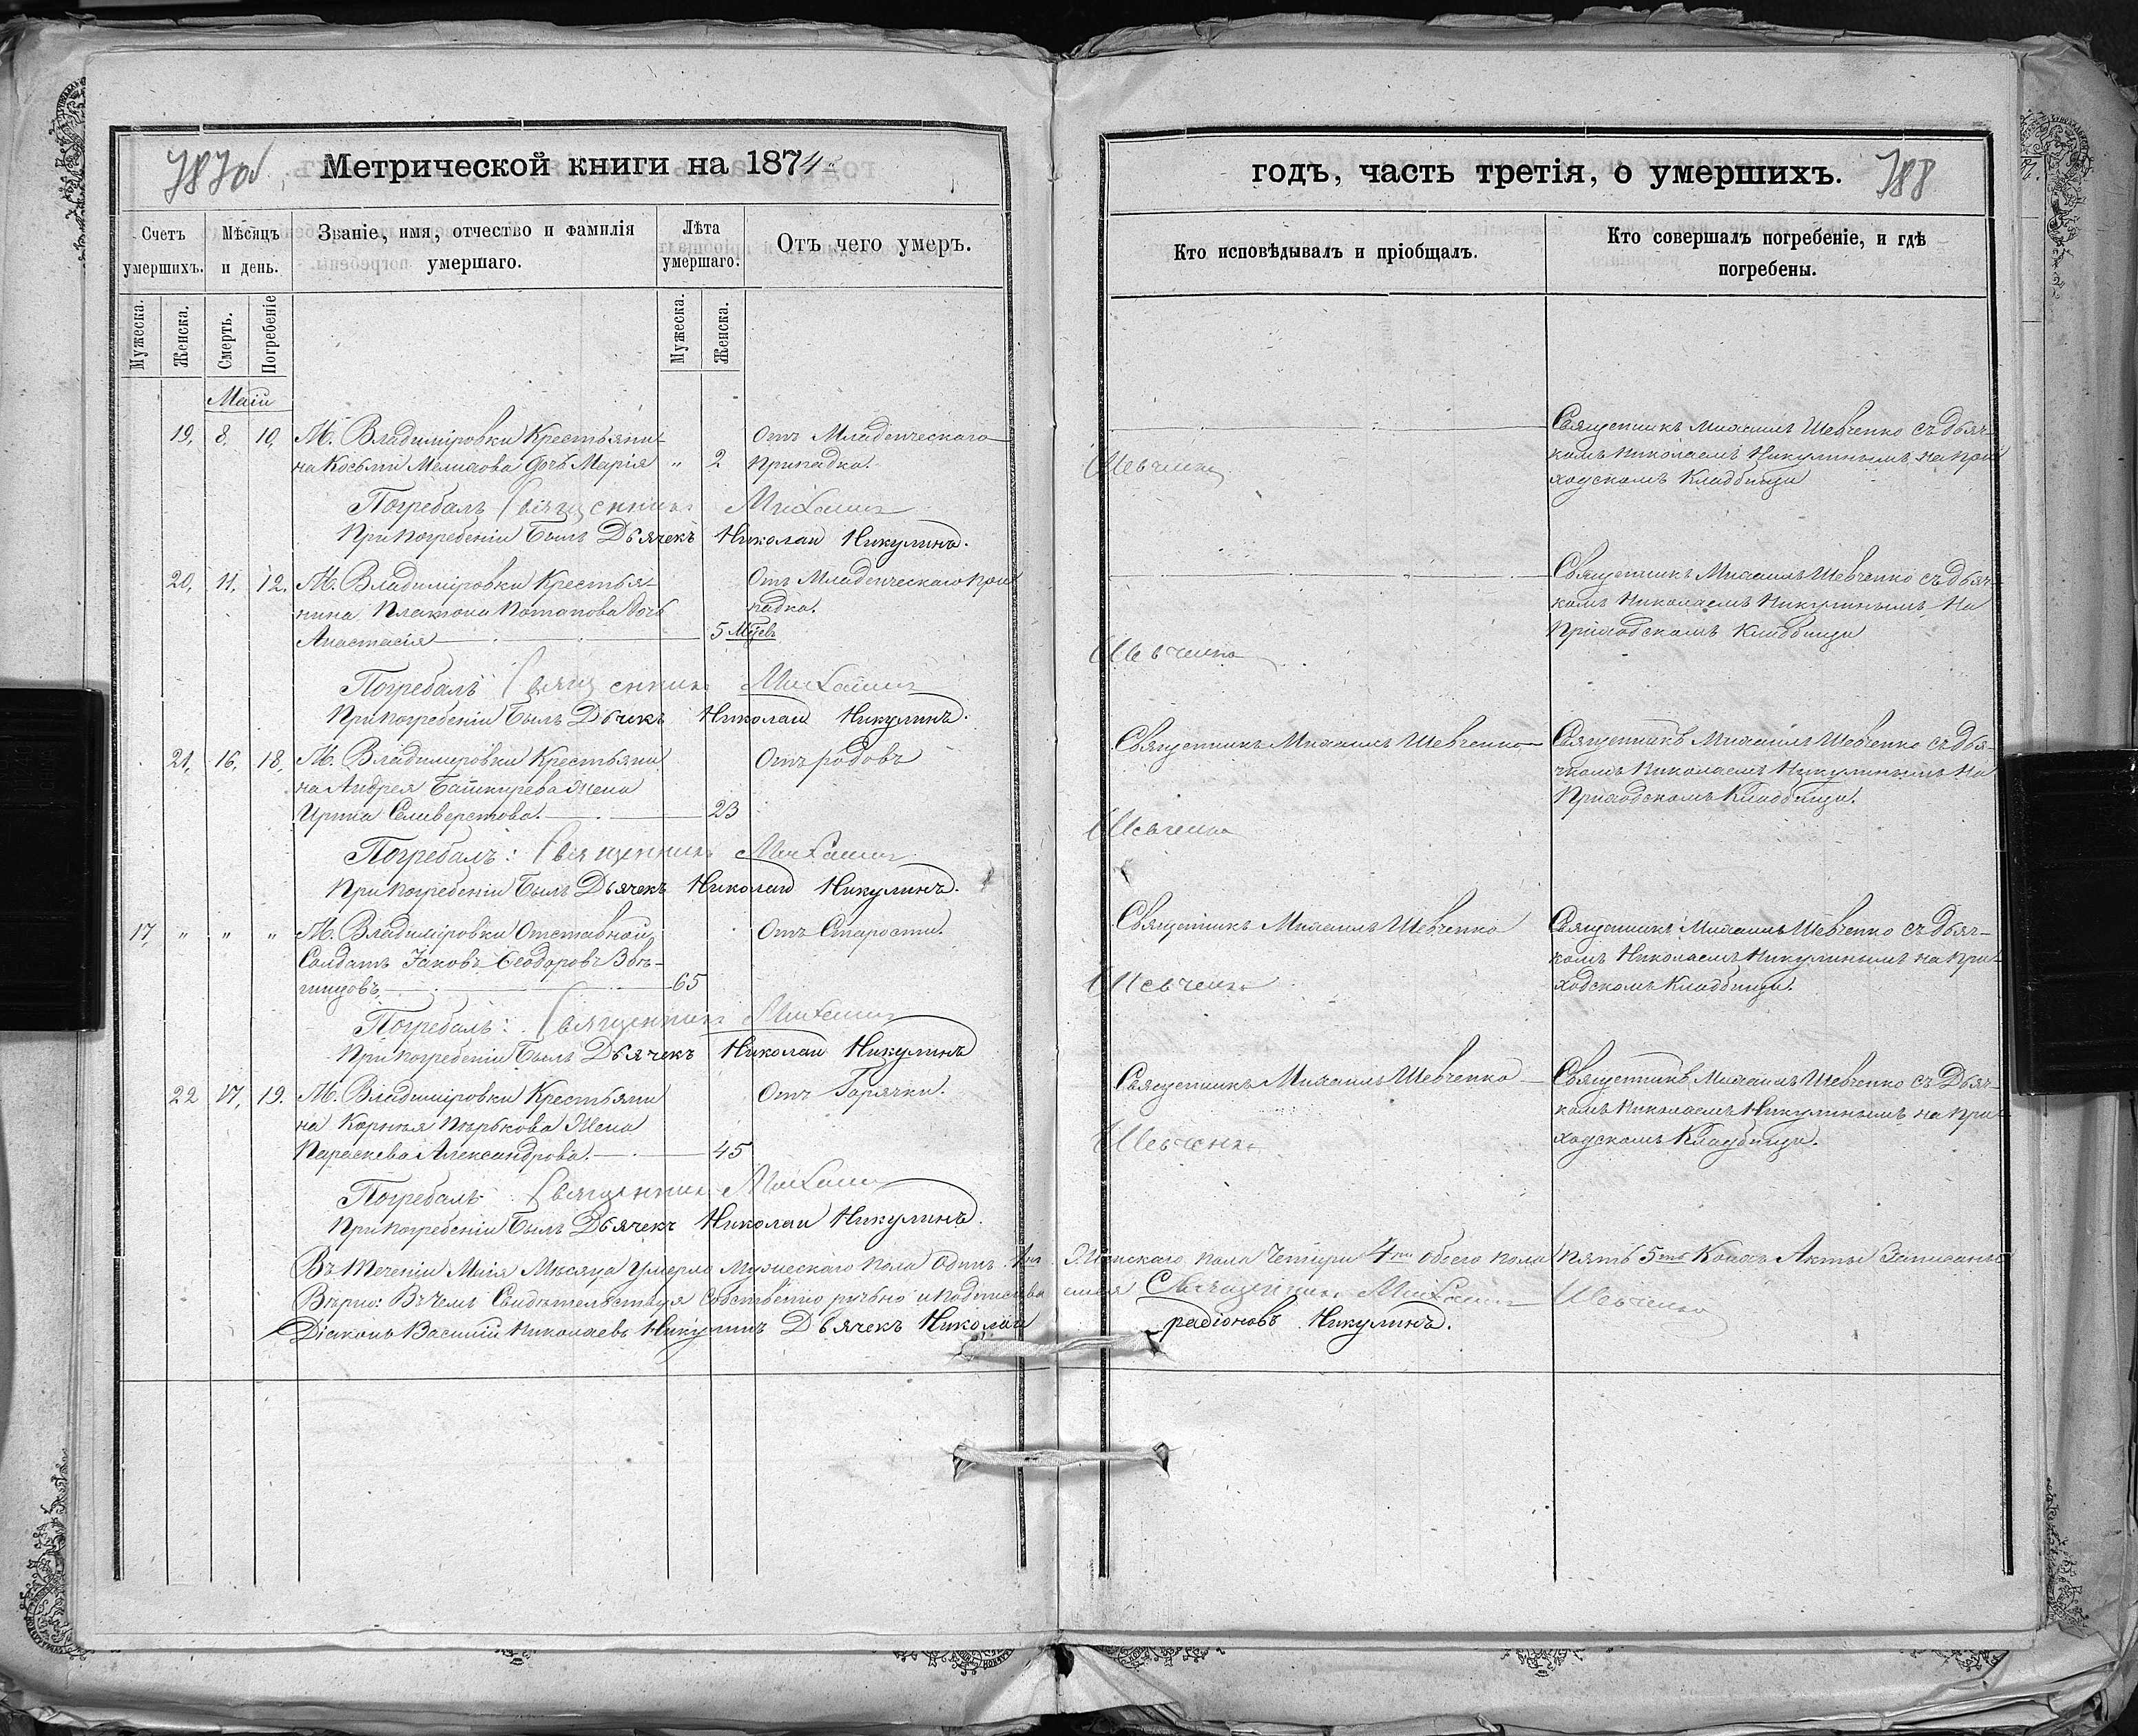 787об
Метрической книги на 1874
Счетъ умершихъ.
Мѣсяцъ и день.
Званіе, имя, отчество и фамилія умершаго.
Лѣта умершаго.
Отъ чего умеръ.
Мужеска.
Женска.
Смерть.
Погребеніе
Мужеска.
Женска.
Маій
19. 8. 10. М. Владиміровки Крестьяни- Отъ Младенческаго
на Косьмы дочь Марія „ 2 припадка.
Погребалъ Священникъ Михаилъ
При погребеніи былъ Дьячекъ Николай Никулинъ.
20. 11. 12. М. Владиміровки Крестья- Отъ Младенческаго при
нина Платона Потапова дочь падка.
Анастасія 5 Мѣсев
Погребалъ Священникъ Михаилъ
При погребеніи былъ Дьчекъ Николай Никулинъ.
21. 16. 18. М. Владиміровки Крестьяни Отъ родовъ
на Андрея Башкирева жена
Ирина Селиверстова. 23
Погребалъ: Священникъ Михаилъ
При погребеніи былъ Дьячекъ Николай Никулинъ.
17. „ „ „ М. Владиміровки Отставной Отъ Старости.
Солдатъ Іаковъ Ѳеодоровъ Звѣ-
гинцовъ 65
Погребалъ: Священникъ Михаилъ
При погребеніи былъ Дьячекъ Николай Никулинъ
22 17. 19. М. Владиміровки Крестьяни Отъ Горячки.
на Корнея жена
Параскева Александрова. 45
Погребалъ Священникъ Михаилъ
При погребеніи былъ Дьячекъ Николай Никулинъ.
Въ теченіи Маія Мѣсяца Умерло Мужескаго пола Одинъ
Вѣрно: Въ чемъ Свидѣтельствуя Собственно ручьно и подписыва
Діаконъ Василій Николаевъ Никулинъ Дьячекъ Николай
годъ, часть третія, о умершихъ.
788
Кто исповѣдывалъ и пріобщалъ.
Кто совершалъ погребеніе, и гдѣ погребены.
Священникъ Михаилъ Шевченко съ дьяч-
комъ Николаемъ Никулинымъ на при
ходскомъ Кладбищи
Шевченко
Священникъ Михаилъ Шевченко съ дьяч-
комъ Николаемъ Никулинымъ на
Приходскомъ Кладбищи
Шевченко
Священникъ Михаилъ Шевченко Священникъ Михаилъ Шевченко съ дья-
чкомъ Николаемъ Никулинымъ на
Приходскомъ Кладбищи.
Шевченко
Священникъ Михаилъ Шевченко Священникъ Михаилъ Шевченко съ дьяч-
комъ Николаемъ Никулинымъ на при-
ходскомъ Кладбищи.
Шевченко
Священникъ Михаилъ Шевченко Священникъ Михаилъ Шевченко съ Дьяч-
комъ Николаемъ Никулинымъ на при-
ходскомъ Кладбищи.
Шевченко
Женскаго пола Четыри 4ри обоего пола пять 5ть Коихъ Акты Записаны
емся Священникъ Михаилъ Шевченко
радіоновъ Никулинъ.